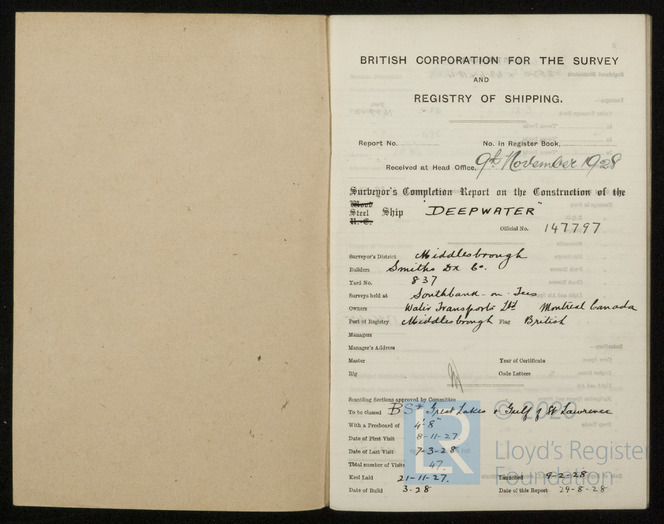 BRITISH CORPORATION FOR THE SURVEY
AND
REGISTRY OF SHIPPING.
Report No. No. in Register Book,
Received at Head Office, 9th November 1928
Surveyor's Completion Report on the Construction of the
Wood
Steel Ship "DEEPWATER"
R.-C.
Official No. 147797
Surveyor's District Middlesbrough
Builders Smiths Dk Co.
Yard No. 837
Surveys held at Southbank-on-Tees
Owners Water Transports Ltd Montreal Canada
Port of Registry Middlesbrough Flag British
Managers
Manager's Address
Master Year of Certificate
Rig Code Letters
Scantling Sections approved by Committee
To be classed BS* Great Lakes & Gulf of St Lawrence
With a Freeboard of 4'-8"
Date of First Visit 8-11-27
Date of Last Visit 7-3-28
Total number of Visits 47
Keel Laid 21-11-27. Launched 9-2-28
Date of Build 3-28 Date of this Report 29-8-28
© 2020
LR
Lloyd's Register
Foundation